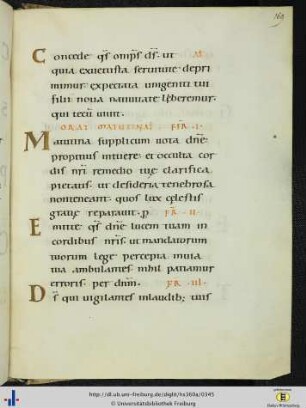 Concede qs omps ds. ut
quia exuetusta seruitute depri
mimur expectata unigeniti tui
filii noua natiuitate liberemur.
qui tecu uiuit.
Matutina supplicum uota dne
propitius intuere. et occulta cor
dis nri remedio tuę clarifica
pietatis. ut desideria tenebrosa
non teneant. quos lux cęlestis
gratię reparauit. p FR II
Emitte qs dne lucem tuam in
cordibus nris. ut mandatorum
tuorum lege percepta in uia
tua ambulantes nihil patiamur
erroris. per dnm. FR III
Ds qui uigilantes in laudib; tuis
http://dl.ub.uni-freiburg.de/diglit/hs360a/0345
© Universitätsbibliothek Freiburg